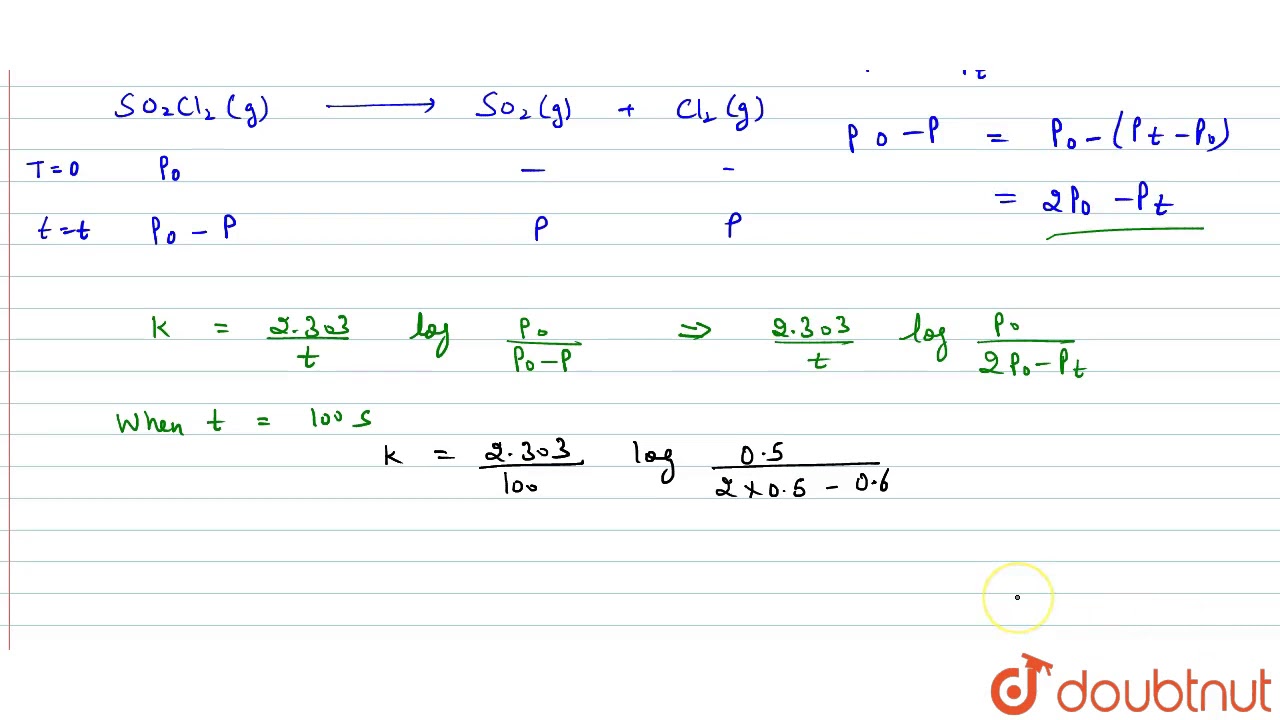 SO2Cl2 (g) ⟶ SO2 (g) + Cl2 (g)
P0 - P = P0 - (Pt - P0)
= 2P0 - Pt
T = 0 P0 — -
t = t P0 - P P P
K = 2.303/t log P0/(P0 - P) ⇒ 2.303/t log P0/(2P0 - Pt)
When t = 100 s
K = 2.303/100 log 0.5/(2 × 0.5 - 0.6
doubtnut